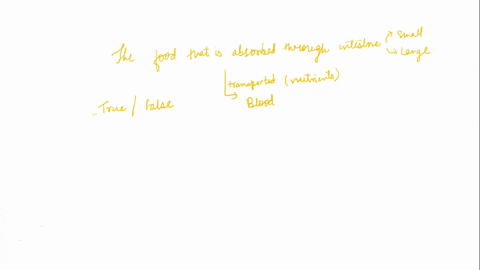 The food that is absorbed through intestine small
large
transported (nutrients)
Blood
True / False